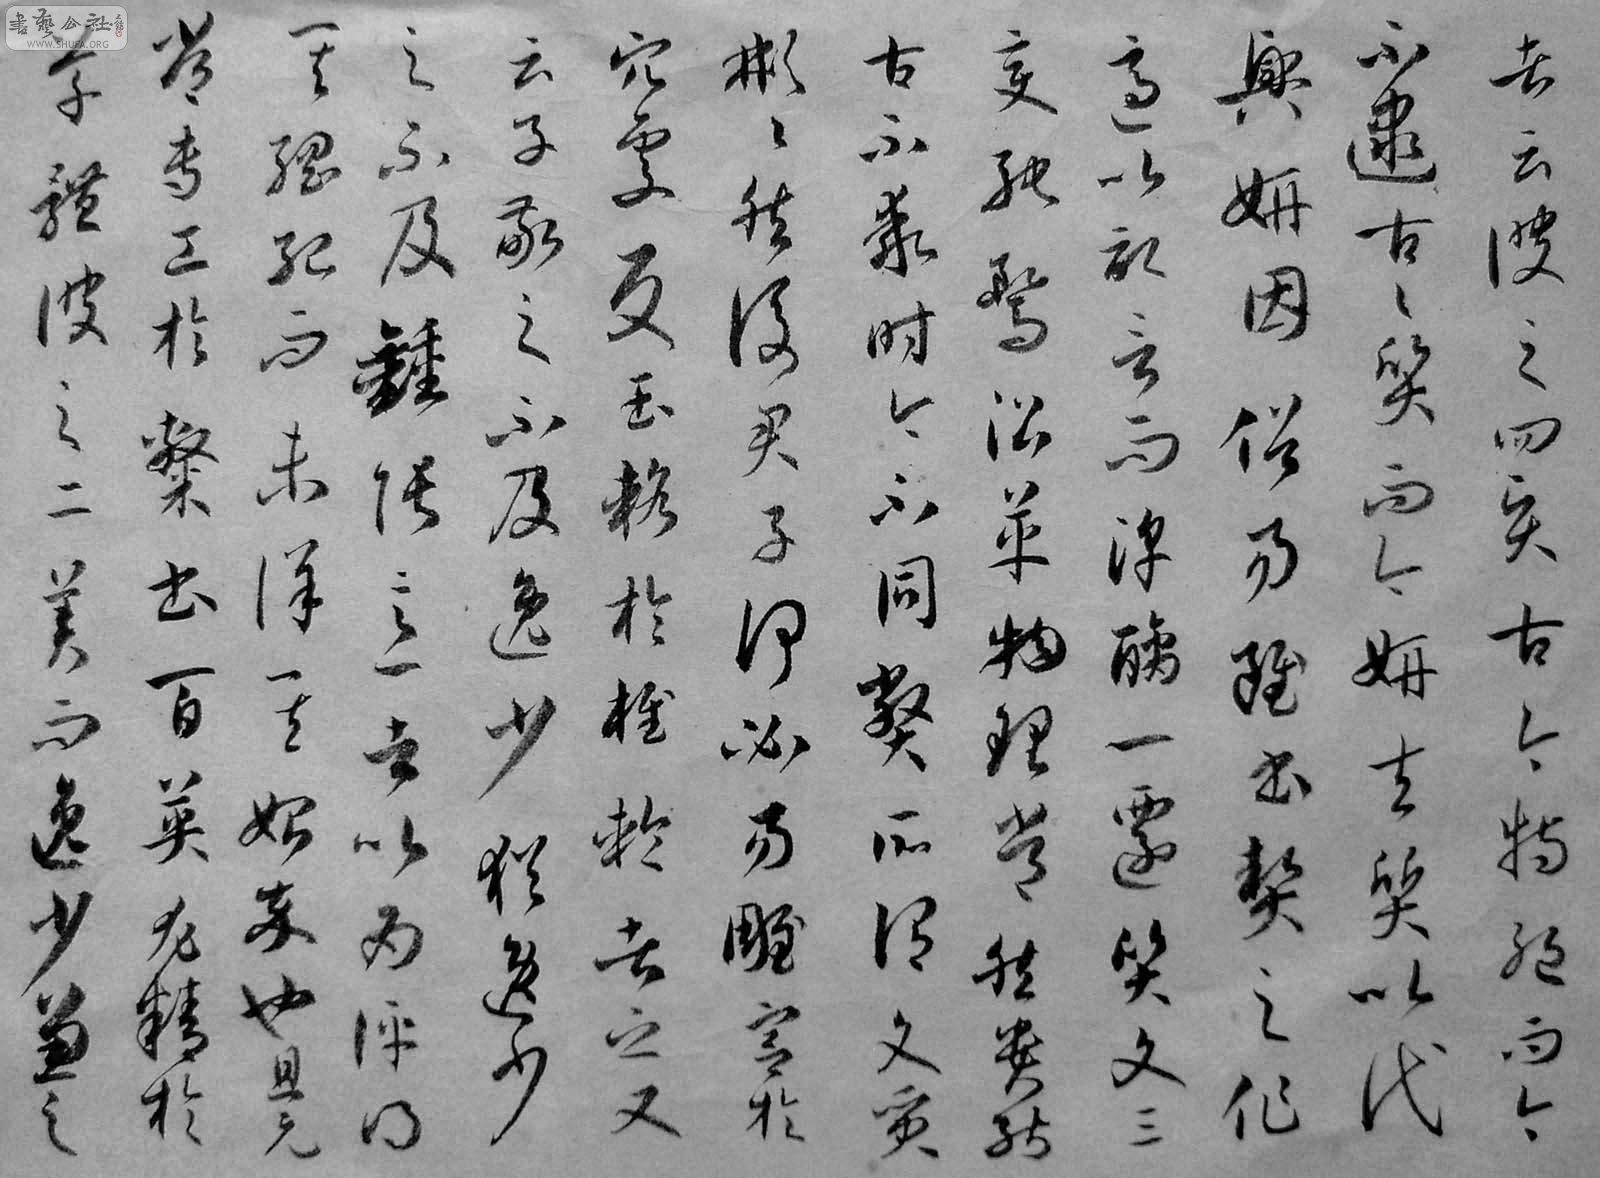 書藝公社
WWW.SHUFA.ORG
者云彼之四賢古今特絕而今
不逮古々質而今妍夫質以代
興妍因俗易雖書契之作
適以記言而淳醨一遷質文三
變馳騖沿革物理常然貴能
古不乖時今不同弊所謂文質
彬々然後君子何必易雕宮於
穴處反玉輅於椎輪者乎又
云子敬之不及逸少猶逸少
之不及鍾張意者以為評得
其綱紀而未詳其始卒也且元
常專工於隸書百英尤精於
草體彼之二美而逸少兼之